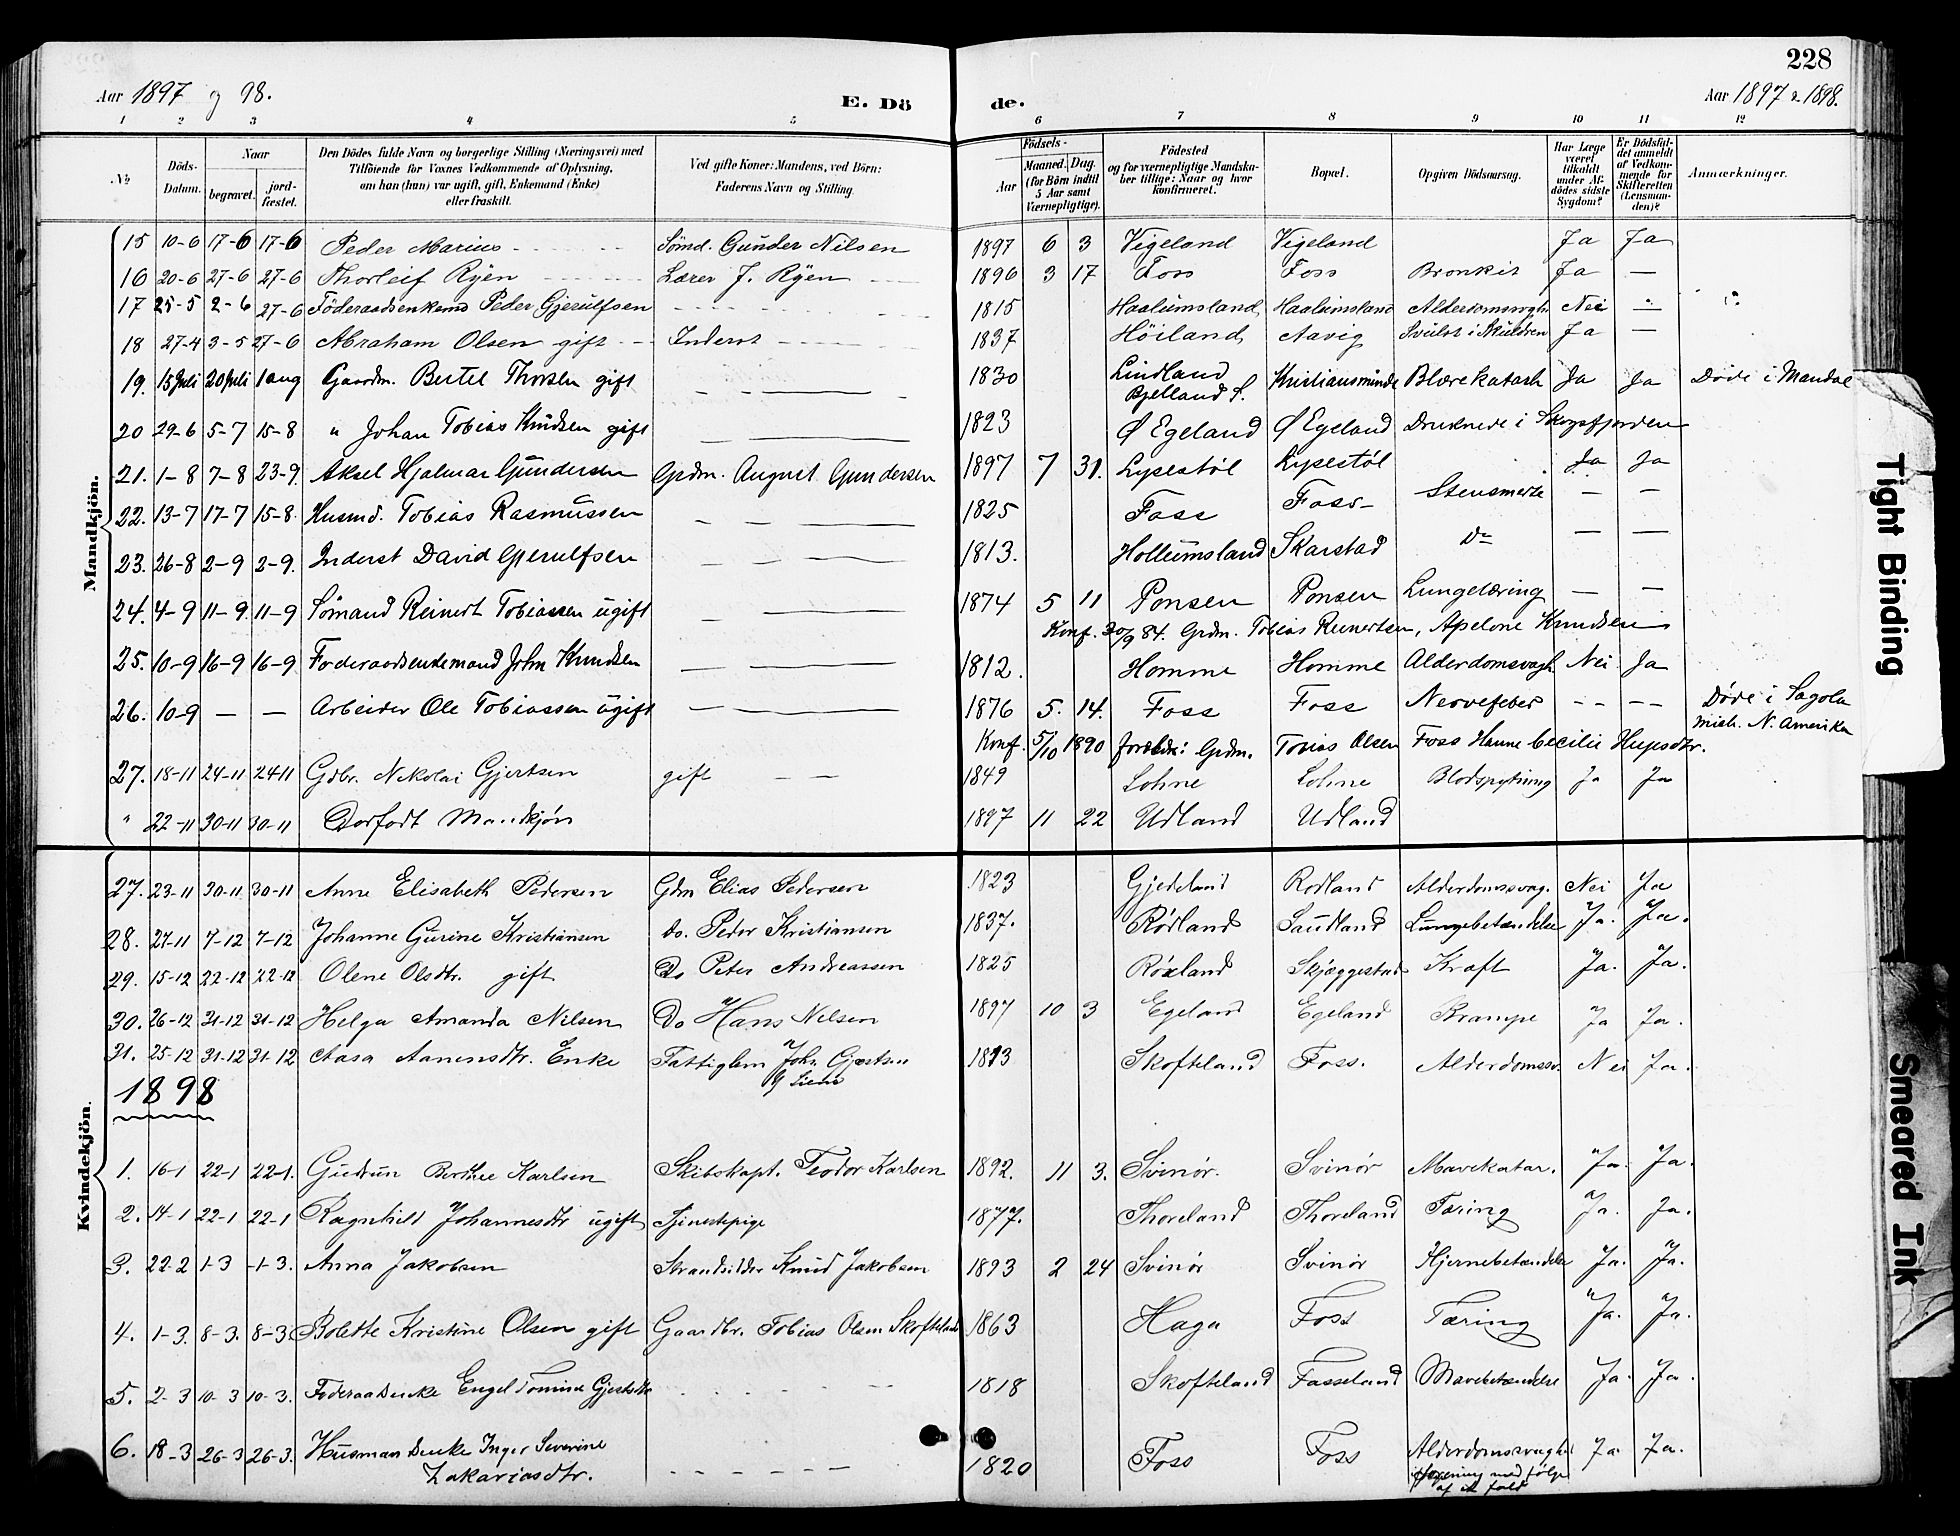 228
Aar 1897 og 98. E. Dö de. Aar 1897 & 1898.
1 2 3 4 5 6 7 8 9 10 11 12
№ Döds-Datum. Naar begravet. jord-fæstet. Den Dödes fulde Navn og borgerlige Stilling (Næringsvei) med Tilföiende for Voxnes Vedkommende af Oplysning, om han (hun) var ugift, gift, Enkemand (Enke) eller fraskilt. Ved gifte Koner: Mandens, ved Börn: Faderens Navn og Stilling. Födsels- Aar Maaned. Dag. (for Börn indtil 5 Aar samt Værnepligtige). Födested og for værnepligtige Mandskaber tillige: Naar og hvor konfirmeret. Bopæl. Opgiven Dödsaarsag. Har Læge været tilkaldt under Afdödes sidste Sygdom? Er Dödsfaldet anmeldt af Vedkommende for Skifteretten (Lensmanden)? Anmærkninger.
Mandkjön.
15 10-6 17-6 17-6 Peder Marius Sömd. Gunder Nilsen 1897 6 3 Vigeland Vigeland Ja Ja
16 20-6 27-6 27-6 Thorleif Ryen Lærer J. Ryen 1896 3 17 Foss Foss Bronkit Ja —
17 25-5 2-6 27-6 Föderaadsenkemd Peder Gjerulfsen 1815 Haalumsland Haalumsland Alderdomssvagh Nei —
18 27-4 3-5 27-6 Abraham Olsen gift Inderst 1837 Höiland Aavig Svulst i Skuldren Ja —
19. 15 Juli 20 Juli 1 aug Gaardm. Bertel Thorsen gift 1830 Lindland Bjelland S. Kristiansminde Blærekatarh Ja Ja Døde i Mandal
20 29-6 5-7 15-8 " Johan Tobias Knudsen gift 1823 Ø Egeland Ø Egeland Druknede i Skogsfjorden
21. 1-8 7-8 23-9. Aksel Hjalmar Gundersen Grdm. August Gundersen 1897 7 31. Lypestøl Lypestøl Ja Ja
22. 13-7 17-7 15-8. Husmd. Tobias Rasmussen 1825 Foss Foss Stensmerte — —
23. 26-8 2-9 2-9. Inderst David Gjerulfsen 1813. Hollumsland Skarstad Do — —
24. 4-9 11-9. 11-9 Sömand Reinert Tobiassen ugift 1874 5 11 Ponsen Ponsen Lungetæring — —
Konf. 30/9 84. Grdm. Tobias Reinertsen, Apelone Knudsen
25. 10-9 16-9 16-9 Foderaadsenkemand John Knudsen 1812. Homme Homme Alderdomsvagh Nei Ja
26. 10-9 — — Arbeider Ole Tobiassen ugift 1876 5. 14. Foss Foss Nervefeber -- -- Døde i Sagola mich. N. Amerika
Konf. 5/10 1890 forældr: Grdm. Tobias Olsen Foss Hanne Cecilie
27. 18-11 24-11 24-11 Gdbr. Nikolai Gjertsen gift 1849 Lohne Lohne Blodspytning Ja Ja
" 22-11 30-11 30-11 Dødfødt Mandkjøn 1897 11 22 Udland Udland
Kvindekjön.
27. 23-11 30-11 30-11 Anne Elisabeth Pedersen Gdm Elias Pedersen 1823 Gjedeland Rodland Alderdomssvag. Nei Ja
28. 27-11 7-12 7-12 Johanne Gurine Kristiansen do. Peder Kristiansen 1837. Rødland Saudland Lungebetændelse Ja. Ja.
29. 15-12 22-12 22-12 Olene Olsdtr. gift Do Peter Andreassen 1825 Røiland Skjæggestad Kræft Ja. Ja.
30. 26-12 31-12 31-12 Helga Amanda Nilsen Do Hans Nilsen 1897 10 3 Egeland Egeland Krampe Ja Ja.
31. 25-12 31-12 31-12 Aasa Aanensdtr. Enke Fattiglem Joh. Gjertsen 1813 Skofteland Foss. Alderdomssv. Nei Ja.
1898
1. 16-1 22-1 22-1. Gudrun Berthee Karlsen Skibskapt. Teodor Karlsen 1892. 11 3. Svinör. Svinör Mavekatar. Ja. Ja.
2. 14-1 22-1 22-1 Ragnhild Johannesdtr ugift Tjenestepige 1877. Thoreland Thoreland Tæring Ja. Ja.
3. 22-2 1-3 1-3. Anna Jakobsen Strandsidder Knud Jakobsen 1893 2 24 Svinör Svinör Hjernebetændelse Ja. Ja.
4. 1-3. 8-3. 8-3. Bolette Kristine Olsen gift Gaardbr. Tobias Olsen Skofteland 1863 Haga Foss Tæring Ja. Ja.
5. 2-3 10-3 10-3. Foderaadsenke Engel Tomine Gjertsdtr 1818 Skofteland Fasseland Mavebetændelse Ja. Ja.
6. 18-3 26-3 26-3. Husmandsenke Inger Severine Zakariasdtr. 1820 Foss Foss Alderdomssvaghed med følge af et fald Ja. Ja.
Tight Binding
Smeared Ink